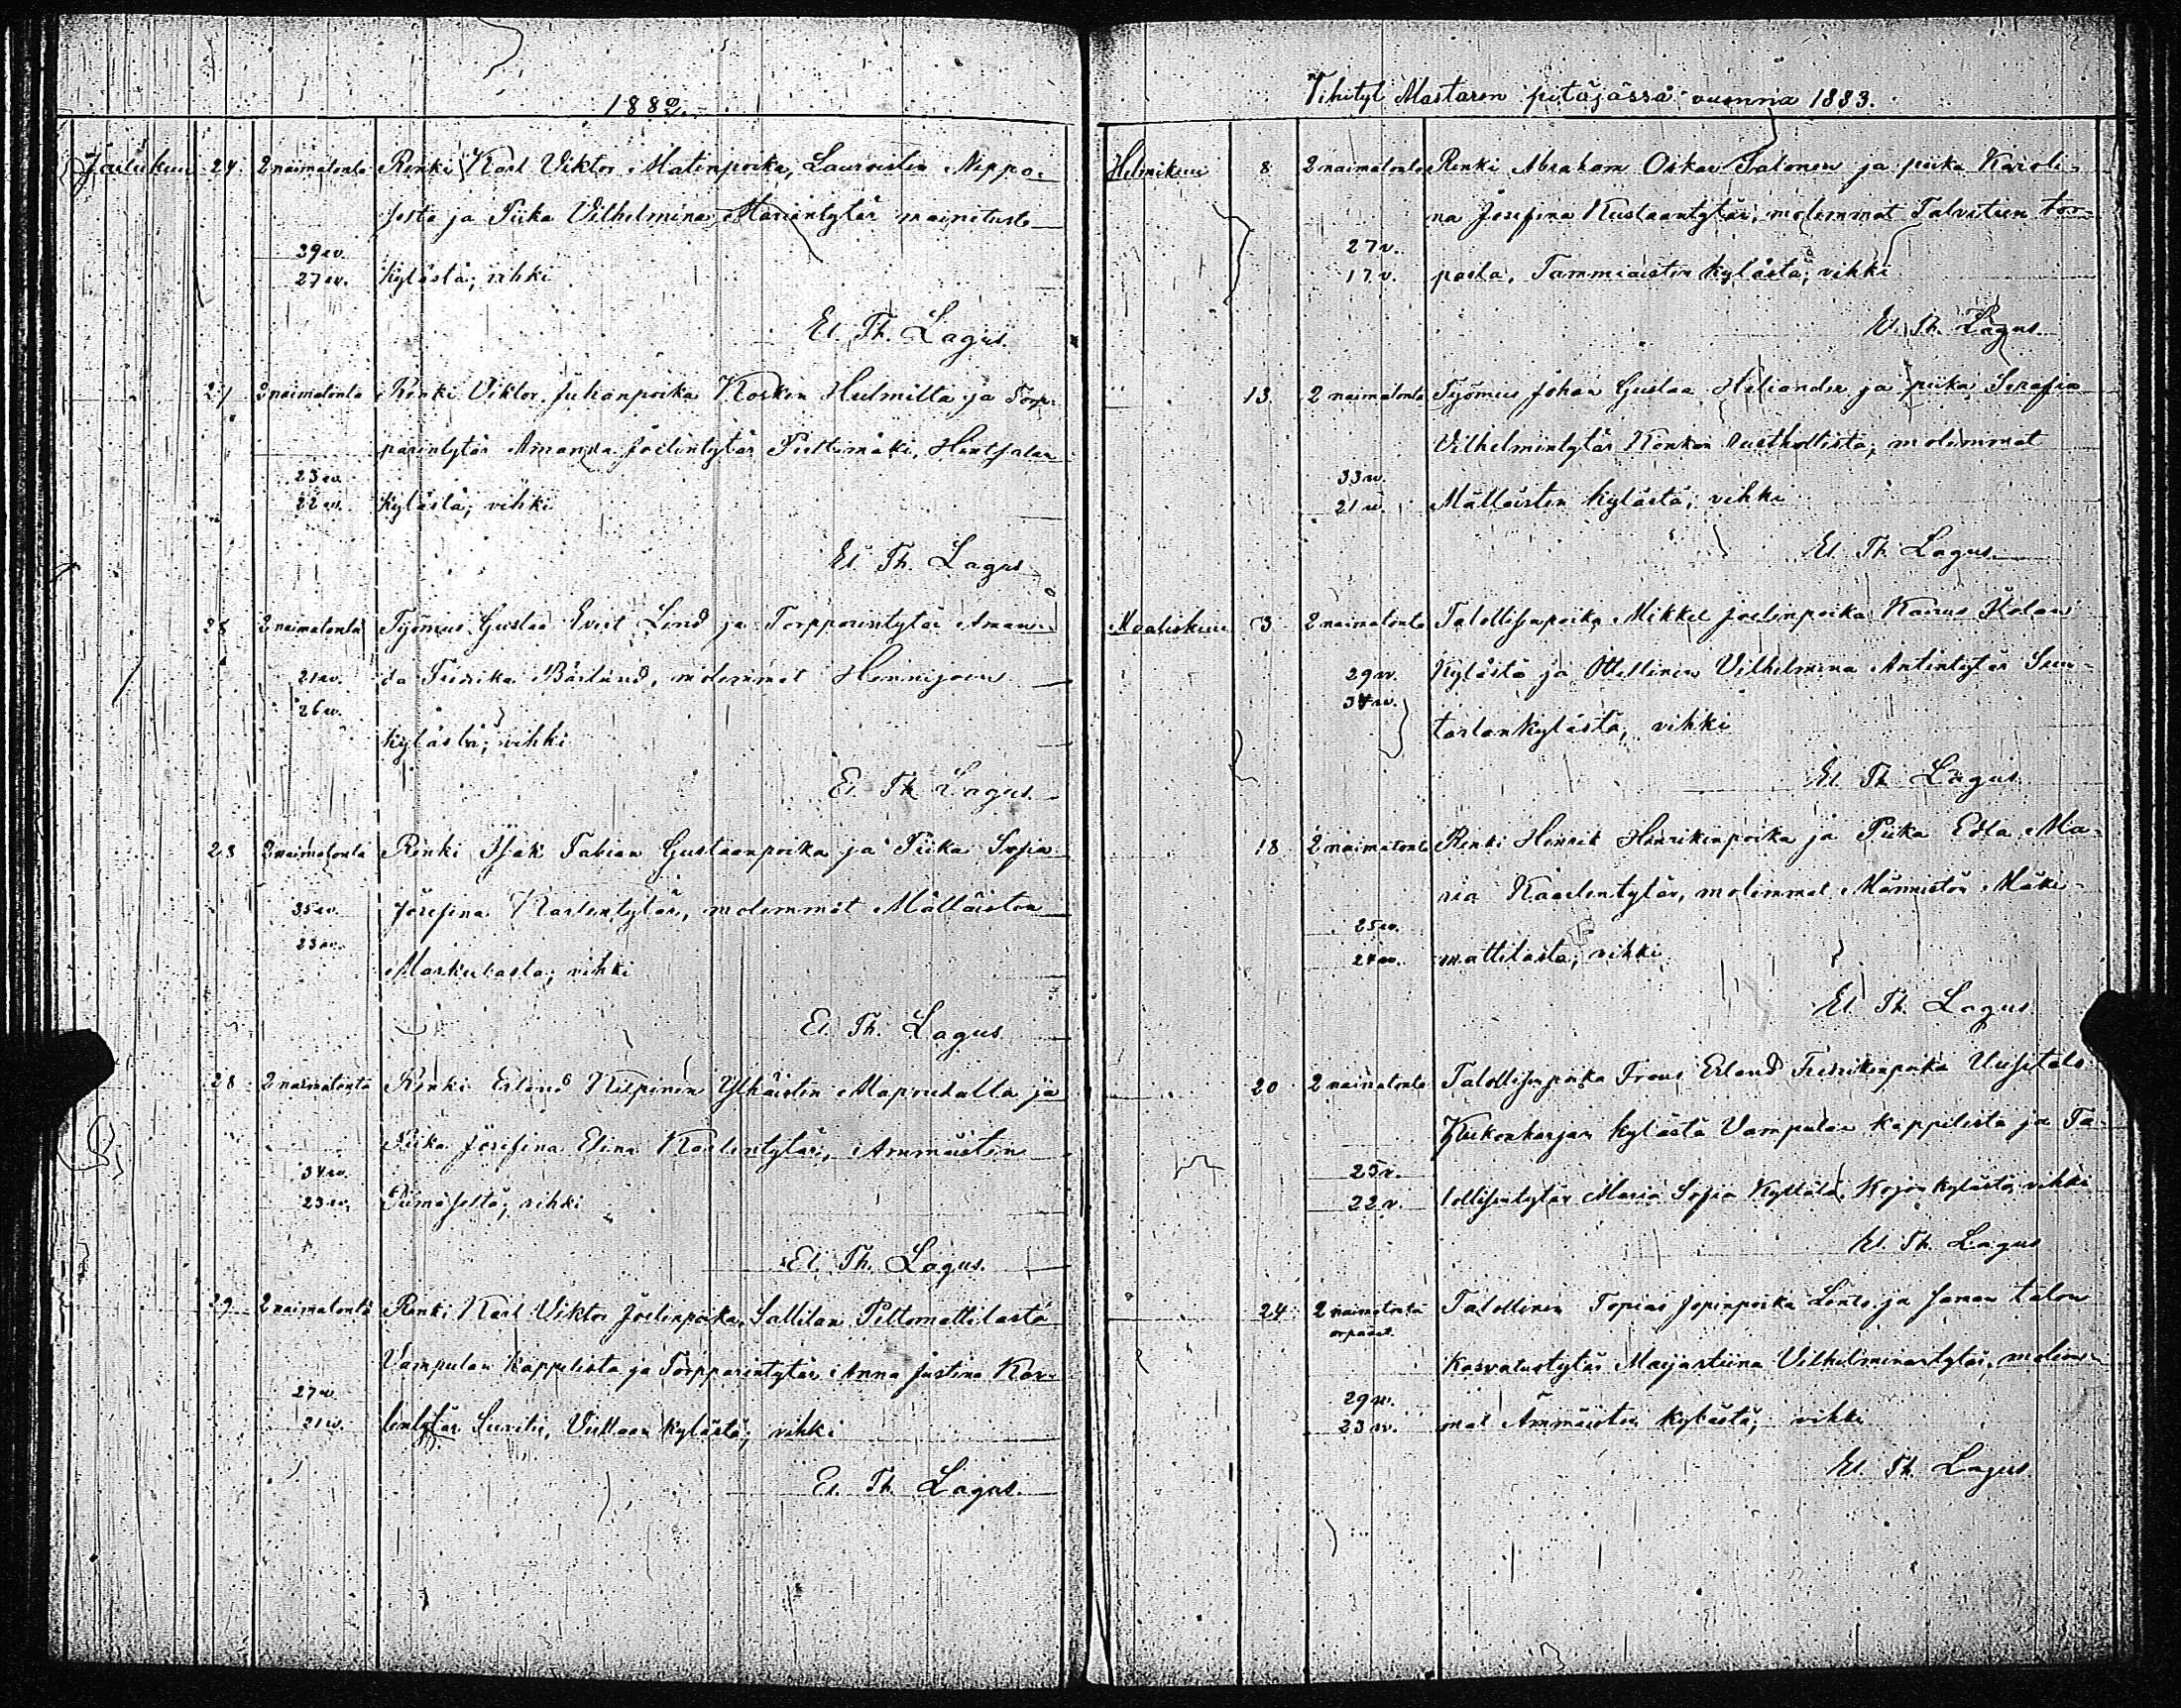 1882.
Joulukuu 24 2 naimatonta Renki Karl Viktor Matinpoika, Lauroisten Neppo-
sesta ja Piika Vilhelmina Mariantytär mainitusta
29 v.
27 v. kylästä; vihki
El. Th. Lagus.
27 2 naimatonta Renki Viktor Juhanpoika Kosken Hulmilta ja Torp-
parintytär Amanda Joelintytär
23 v.
22 v. kylästä; vihki
El. Th. Lagus
28 2 naimatonta Työmies Gustaa Evert Lind ja Torpparintytär Aman-
21 v. da Fredrika Bärlund, molemmat Hennijoen
26 v.
kylästä; vihki
El. Th. Lagus.
28 2 naimatonta Renki Isak Fabian Gustaanpoika ja Piika Sofia
35 v. Josefina Karlentytär, molemmat Mälläisten
23 v.
Markulasta; vihki
El. Th. Lagus
28 2 naimatonta Renki Erland Kilpinen Ylhäisten ja
Piika Josefina Elina Karlentytär, Ammäisten
34 v.
23 v. vihki
El. Th. Lagus.
29 2 naimatonta Renki Karl Viktor Joelinpoika, Sallilan Piltomattilasta
Vampulan kappelista ja Torpparintytär Anna Justina Kar-
27 v.
21 v. lentytär kylästä; vihki
El. Th. Lagus.
Vihityt Maskaren pitäjässä vuonna 1883.
Helmikuu 8 2 naimatonta Renki Abraham Oskar Salonen ja piika Karoli-
na Josefina Kustaantytär, molemmat Talvitien tor-
27 v.
17 v. pasta, Tammiaisten kylästä; vihki
El. Th. Lagus.
13 2 naimatonta Työmies Johan Gustaa Heliander ja piika Serafia
Vilhelmintytär Konkon Rusthollista, molemmat
33 v.
21 v. Mälläisten kylästä; vihki
El. Th. Lagus
Maaliskuu 3 2 naimatonta Talollisenpoika Mikkel Joelinpoika
29 v. kylästä ja Itsellinen Vilhelmina Antintytär Suu-
34 v.
tarlankylästä; vihki
El. Th. Lagus.
18 2 naimatonta Renki Henrik Henrikinpoika ja Piika Edla Ma-
ria Kaarlentytär, molemmat Männistön Mäki-
25 v.
24 v. mattilasta; vihki
El. Th. Lagus.
20 2 naimatonta Talollisenpoika Frans Erland Fredrikinpoika Uusitalo
Kukonharjan kylästä Vampulan kappelista ja Ta-
25 v.
22 v. lollisentytär Maria Sofia Kyttälä, Kojon kylästä; vihki
El. Th. Lagus
24 2 naimatonta Talollinen Topias Jopinpoika Lento ja saman talon
orpaat.
kasvatustytär Maijastiina Vilhelminantytär, molem-
29 v.
23 v. mat Ammäisten kylästä; vihki
El. Th. Lagus.